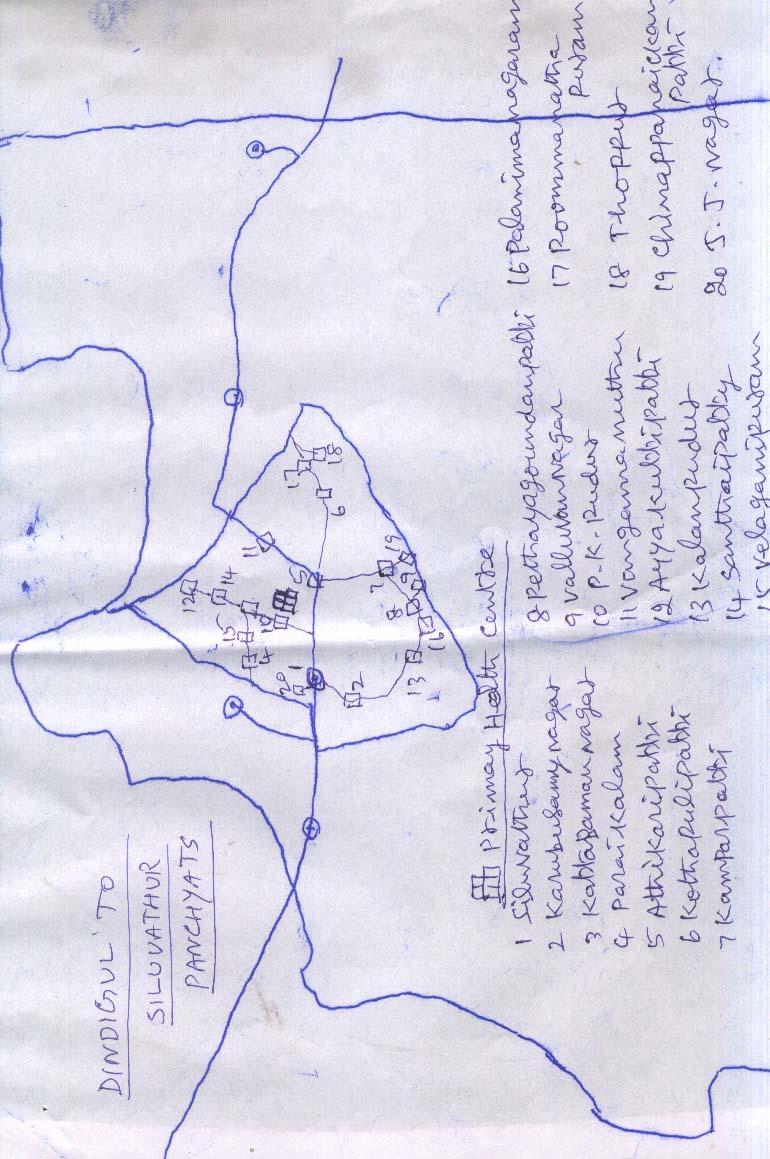 DINDIGUL TO
SILUVATHUR
PANCHYATS
12
14
15
4
10
11
20
1
5
2
7
19
9
8
16
13
6
17
18
Primay Health Centre
1 Siluvathur
2 Karupusamynagar
3 Kattaraman nagar
4 Paraikalam
5 Athikaripatti
6 Kothapulipatti
7 Kamparpatti
8 Pethayagoundanpatti
9 Valluvarnagar
10 P.K. Pudur
11 Vangamanuthu
12 Ayyakuttipatti
13 Kalanpudur
14 Santhaipatty
15 Velaganipuram
16 Palanimanagaram
17 Roommanatha
Puram
18 Thoppur
19 Chinappanaickan
Patti
20 J.J. nagar.